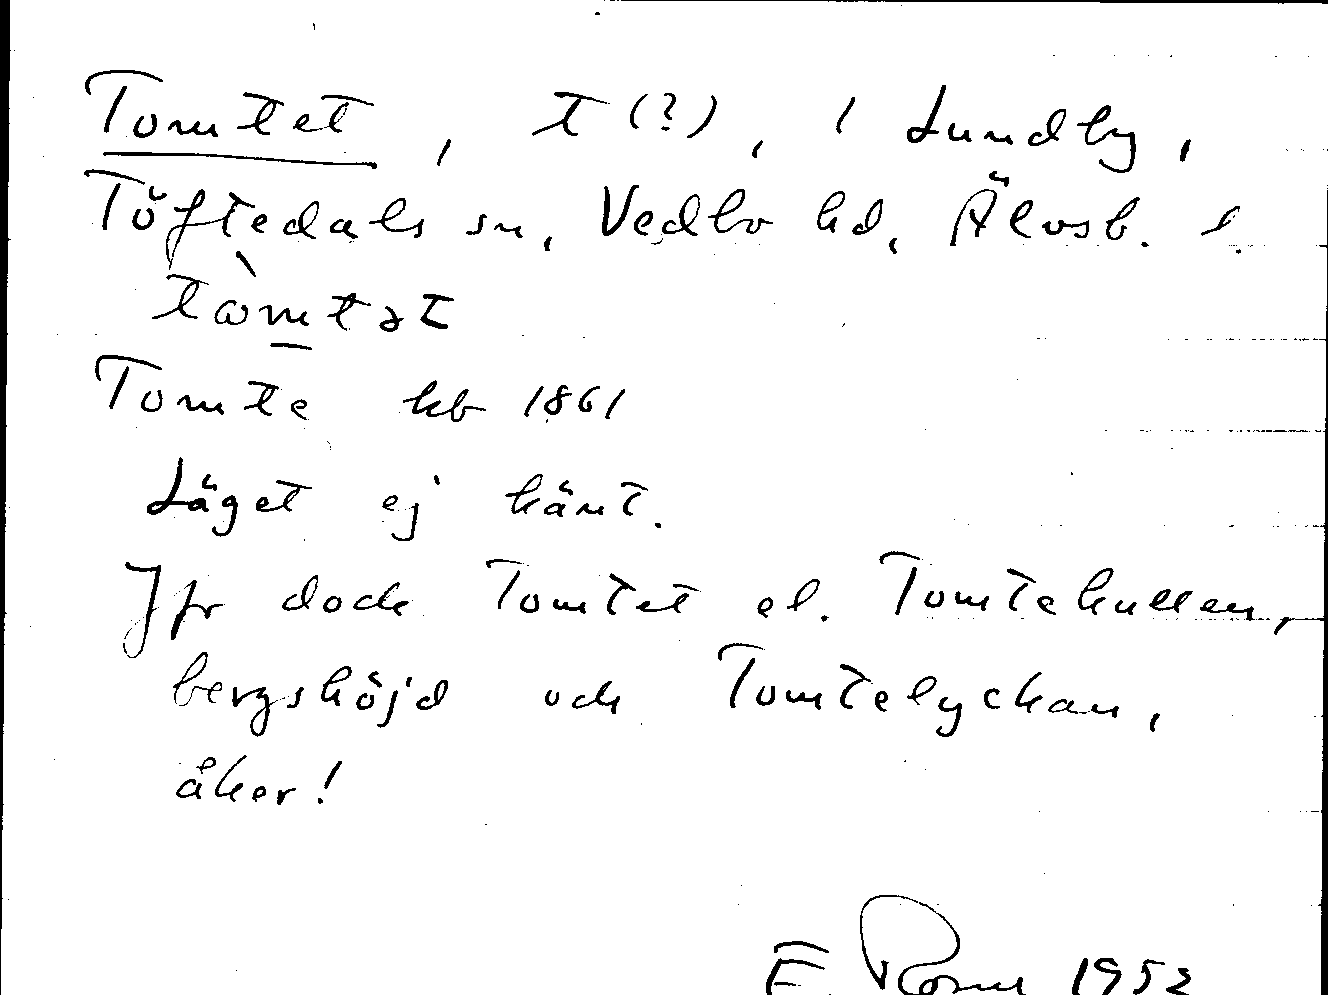 Tomtet, t (?), / Lundby,
Töftedals sn, Vedbo hd, Älvsb. l.
tòmtət
Tomte kb 1861
Läget ej känt.
Jfr dock Tomtet el. Tomtekullen,
bergshöjd och Tomtelyckan,
åker!
E. 1952